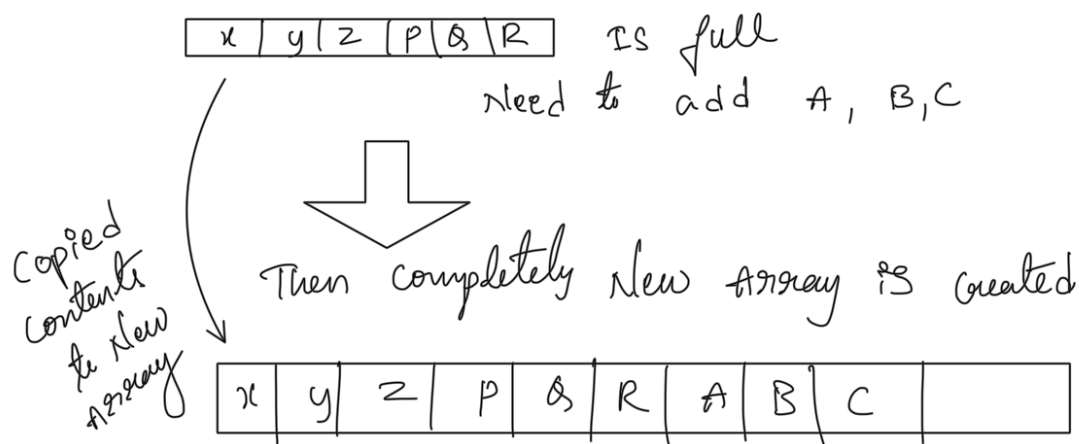 x y Z P Q R Is full
Need to add A, B, C
Copied
contents
to New
Array
Then completely New Array is created
x y Z P Q R A B C